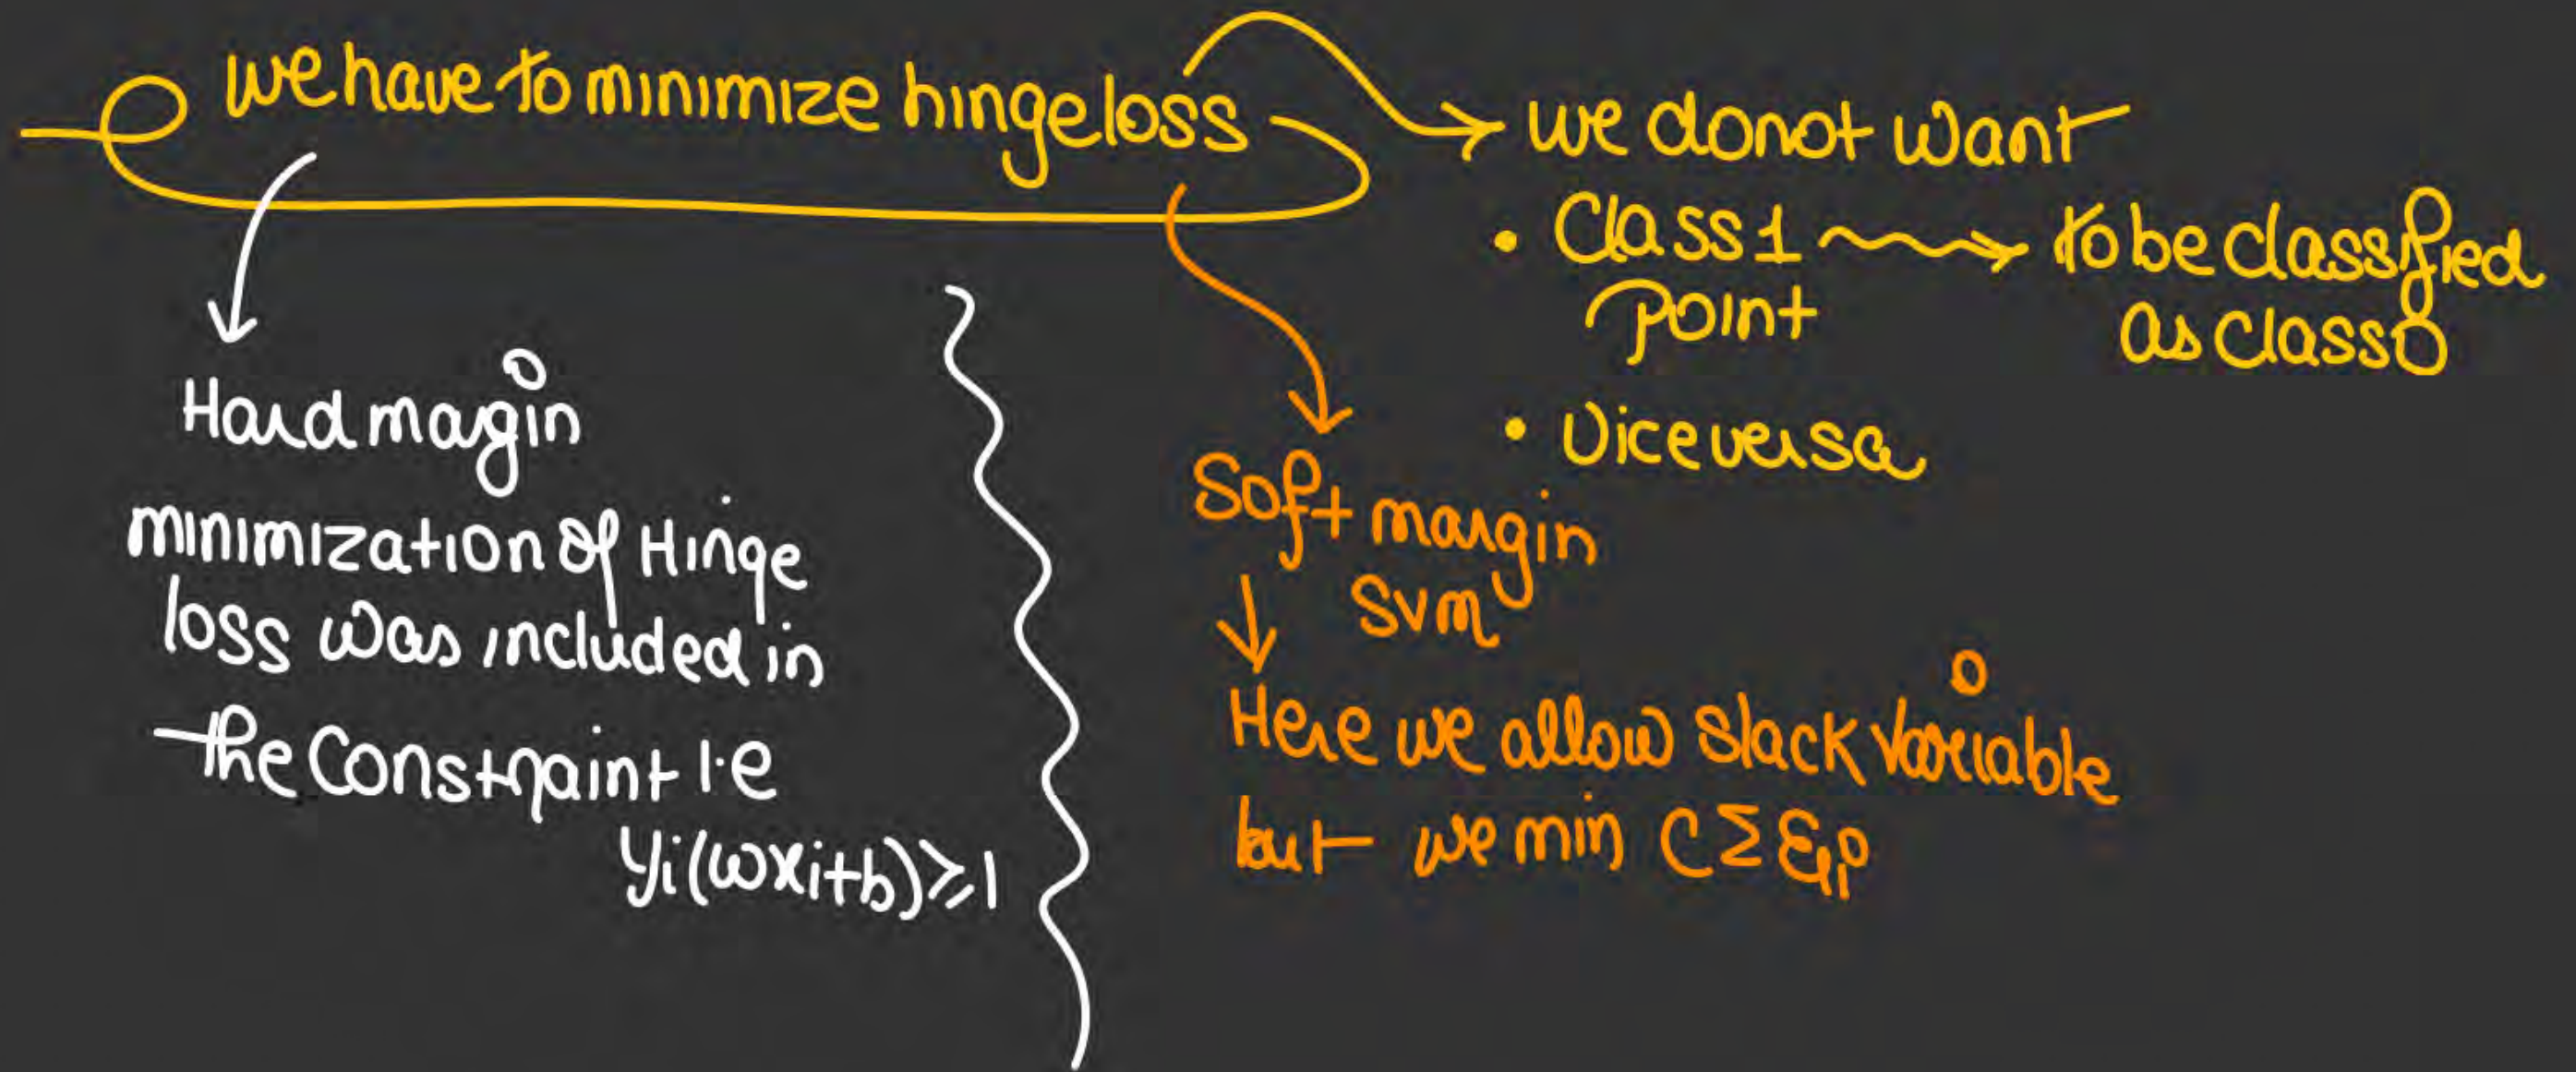 we have to minimize hinge loss
we donot want
• Class 1 point
to be classified
as class 0
• Vice versa
Hard margin
minimization of Hinge
loss was included in
the Constraint i.e
yi(wxi+b)≥1
Soft margin
SVM
Here we allow slack variable
but we min C Σ ξi